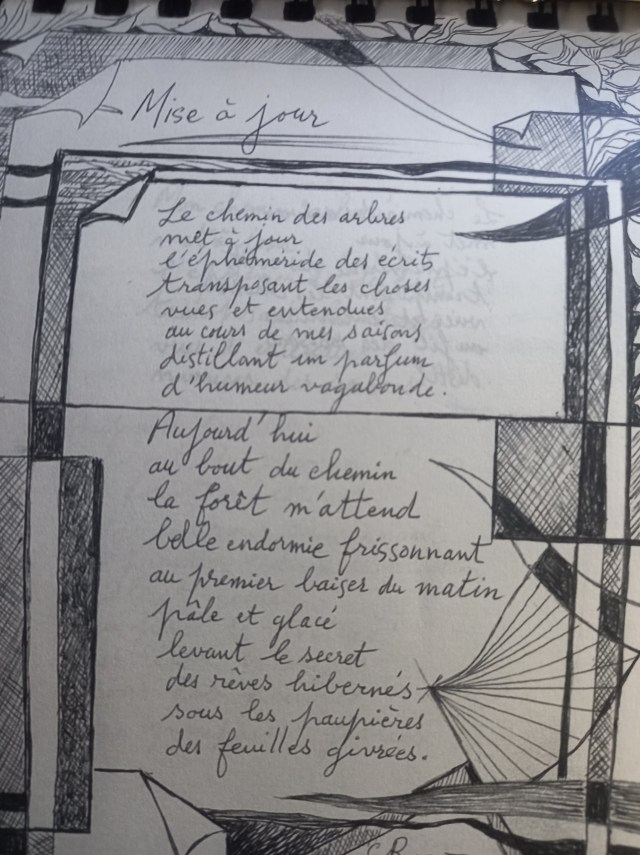 Mise à jour
Le chemin des arbres
met à jour
l'éphéméride des écrits
transposant les choses
vues et entendues
au cours de mes saisons
distillant un parfum
d'humeur vagabonde.
Aujourd'hui
au bout du chemin
la forêt m'attend
belle endormie frissonnant
au premier baiser du matin
pâle et glacé
levant le secret
des rêves hibernés
sous les paupières
des feuilles givrées.